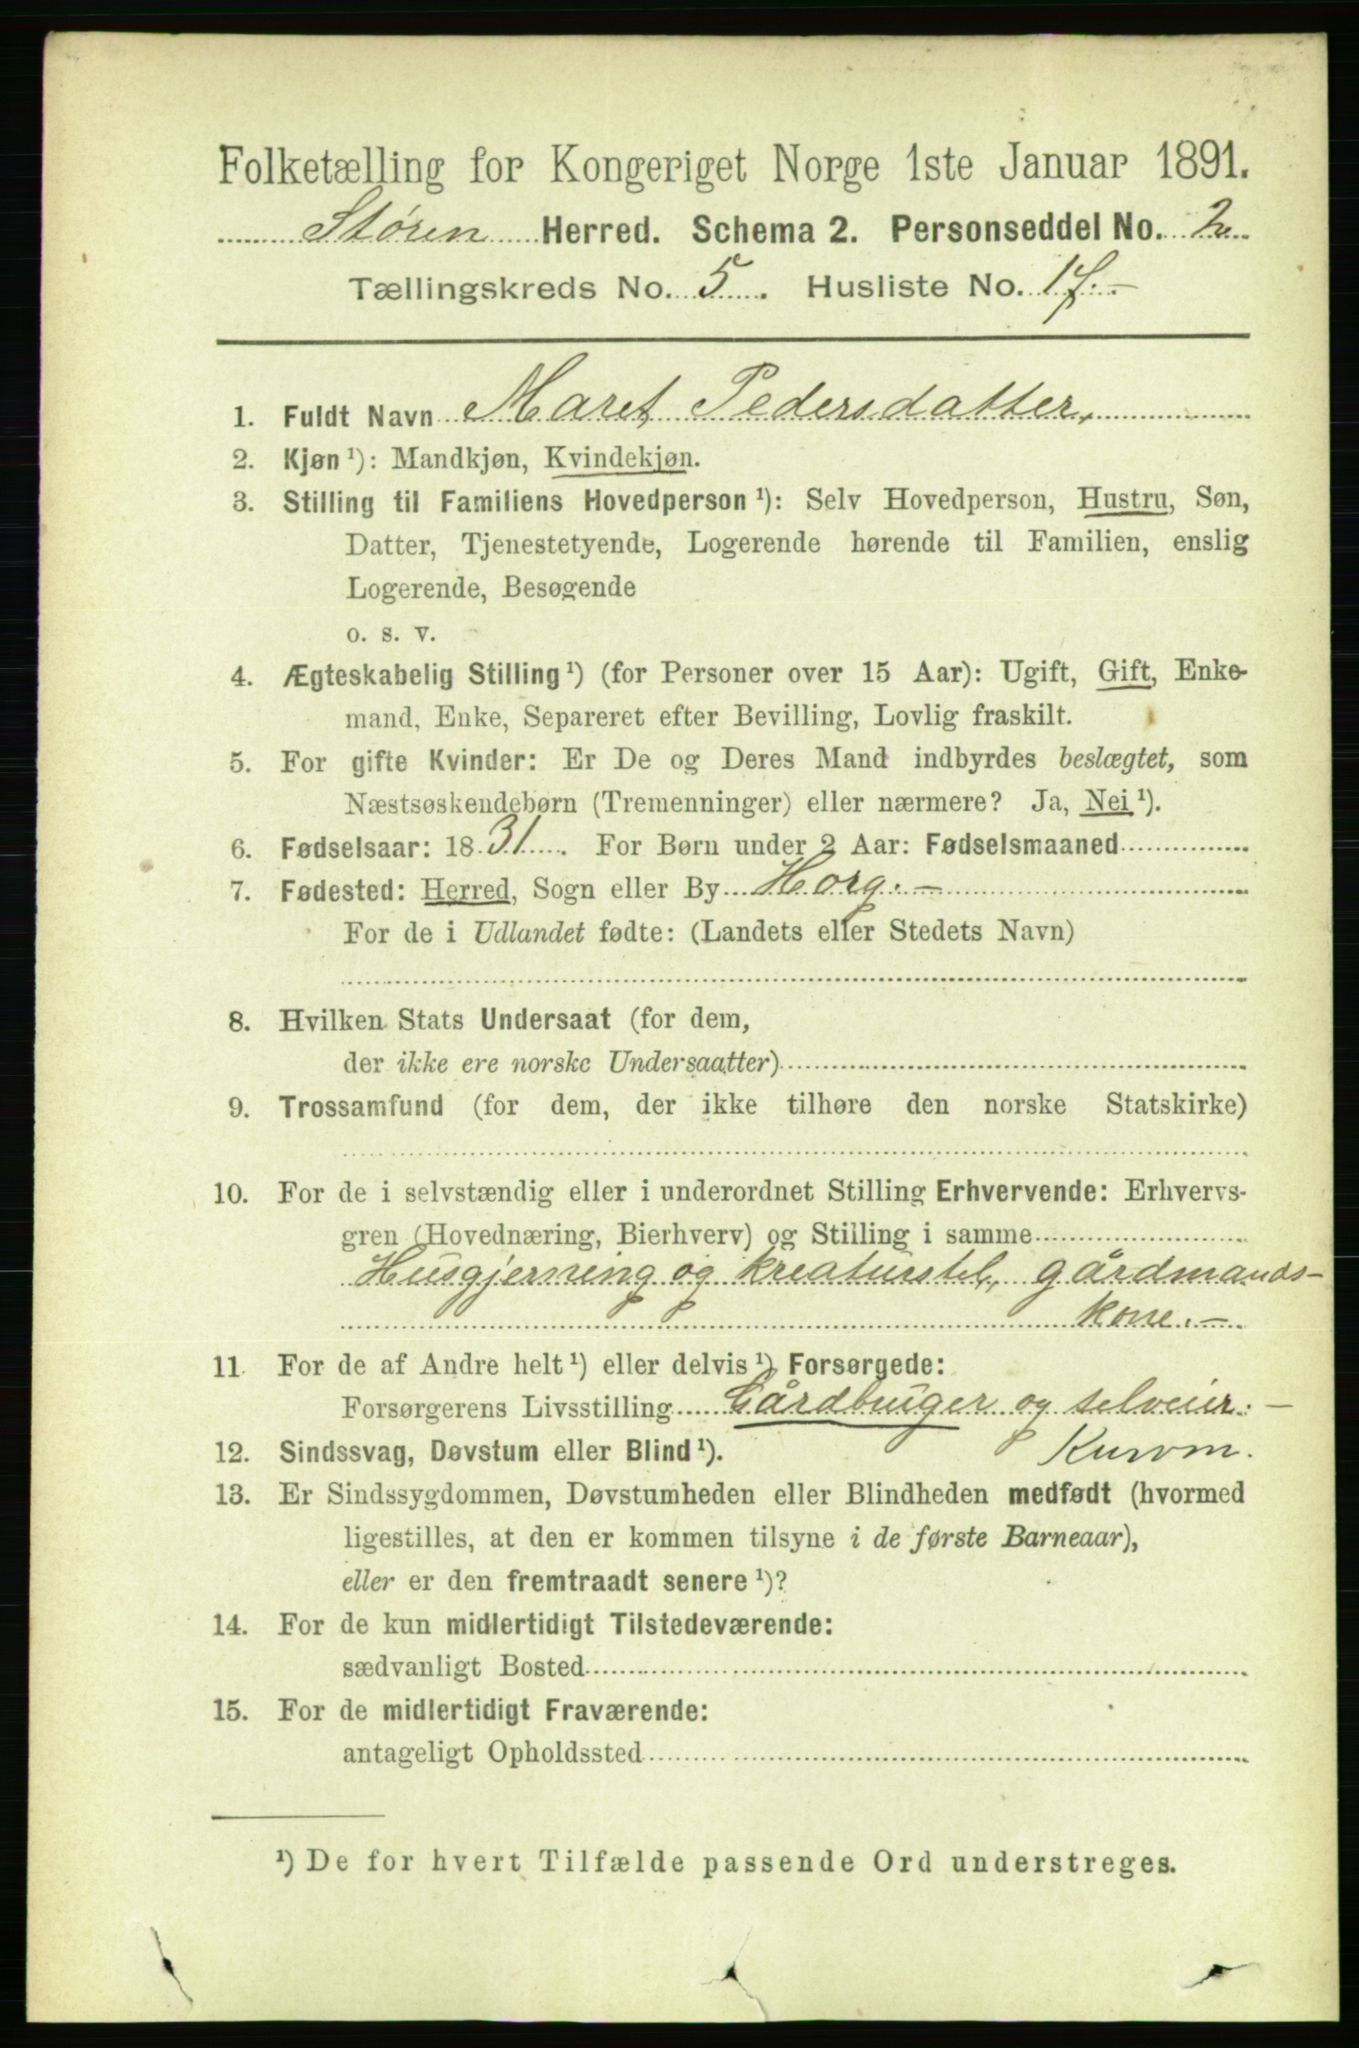 Folketælling for Kongeriget Norge 1ste Januar 1891.
Støren Herred. Schema 2. Personseddel No. 2.
Tællingskreds No. 5. Husliste No. 17.-
1. Fuldt Navn Maret Pedersdatter,
2. Kjøn ¹): Mandkjøn, Kvindekjøn.
3. Stilling til Familiens Hovedperson ¹): Selv Hovedperson, Hustru, Søn,
Datter, Tjenestetyende, Logerende hørende til Familien, enslig
Logerende, Besøgende
o. s. v.
4. Ægteskabelig Stilling ¹) (for Personer over 15 Aar): Ugift, Gift, Enke-
mand, Enke, Separeret efter Bevilling, Lovlig fraskilt.
5. For gifte Kvinder: Er De og Deres Mand indbyrdes beslægtet, som
Næstsøskendebørn (Tremenninger) eller nærmere? Ja, Nei ¹).
6. Fødselsaar: 1831. For Børn under 2 Aar: Fødselsmaaned
7. Fødested: Herred, Sogn eller By Horg.-
For de i Udlandet fødte: (Landets eller Stedets Navn)
8. Hvilken Stats Undersaat (for dem,
der ikke ere norske Undersaatter)
9. Trossamfund (for dem, der ikke tilhøre den norske Statskirke)
10. For de i selvstændig eller i underordnet Stilling Erhvervende: Erhvervs-
gren (Hovednæring, Bierhverv) og Stilling i samme
Husgjerning og kreaturstel, gårdmands-
kone.-
11 For de af Andre helt ¹) eller delvis ¹) Forsørgede:
Forsørgerens Livsstilling Gårdbruger og selveier.-
12. Sindssvag, Døvstum eller Blind ¹).
13. Er Sindssygdommen, Døvstumheden eller Blindheden medfødt (hvormed
ligestilles, at den er kommen tilsyne i de første Barneaar),
eller er den fremtraadt senere ¹)?
14. For de kun midlertidigt Tilstedeværende:
sædvanligt Bosted
15. For de midlertidigt Fraværende:
antageligt Opholdssted
¹) De for hvert Tilfælde passende Ord understreges.